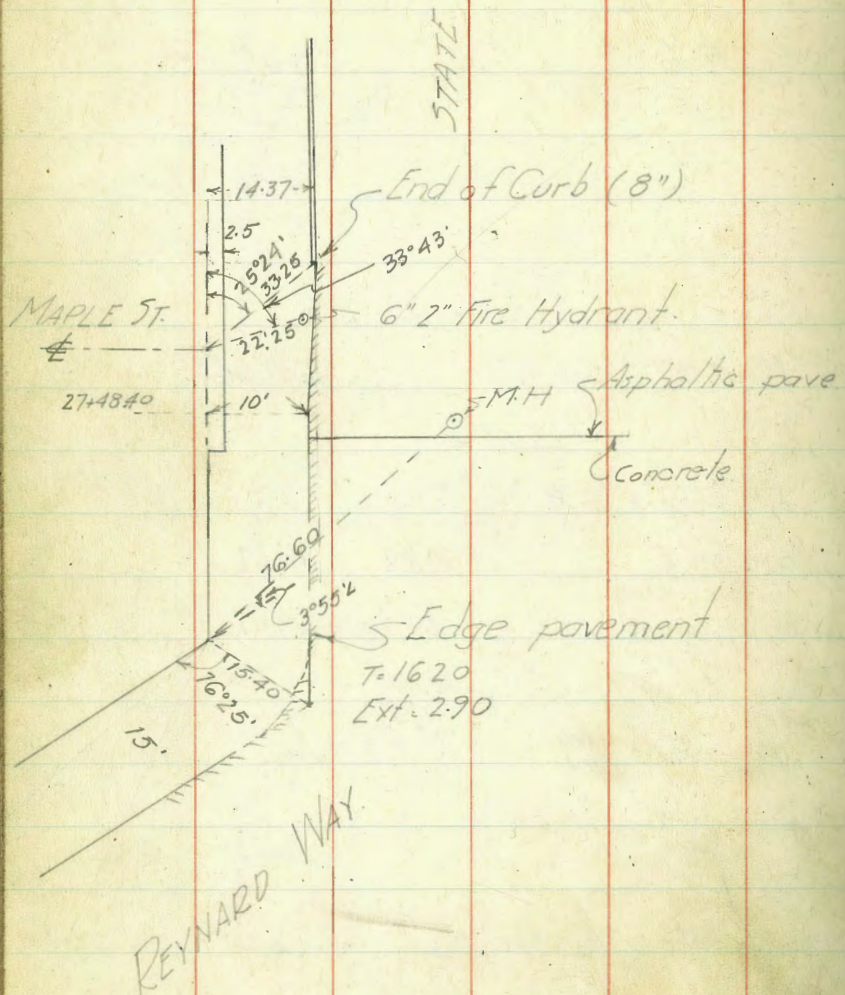 STATE
14.37
End of Curb (8")
2.5
25°24'
33.25
33°43'
MAPLE ST.
6" 2" Fire Hydrant.
22.25
℄
27+48.40
10'
M.H
Asphaltic pave
Concrete
76.60
3°55'
Edge pavement
T=16 20
Ext. 2.90
15.40
76°25'
15'
REYNARD WAY